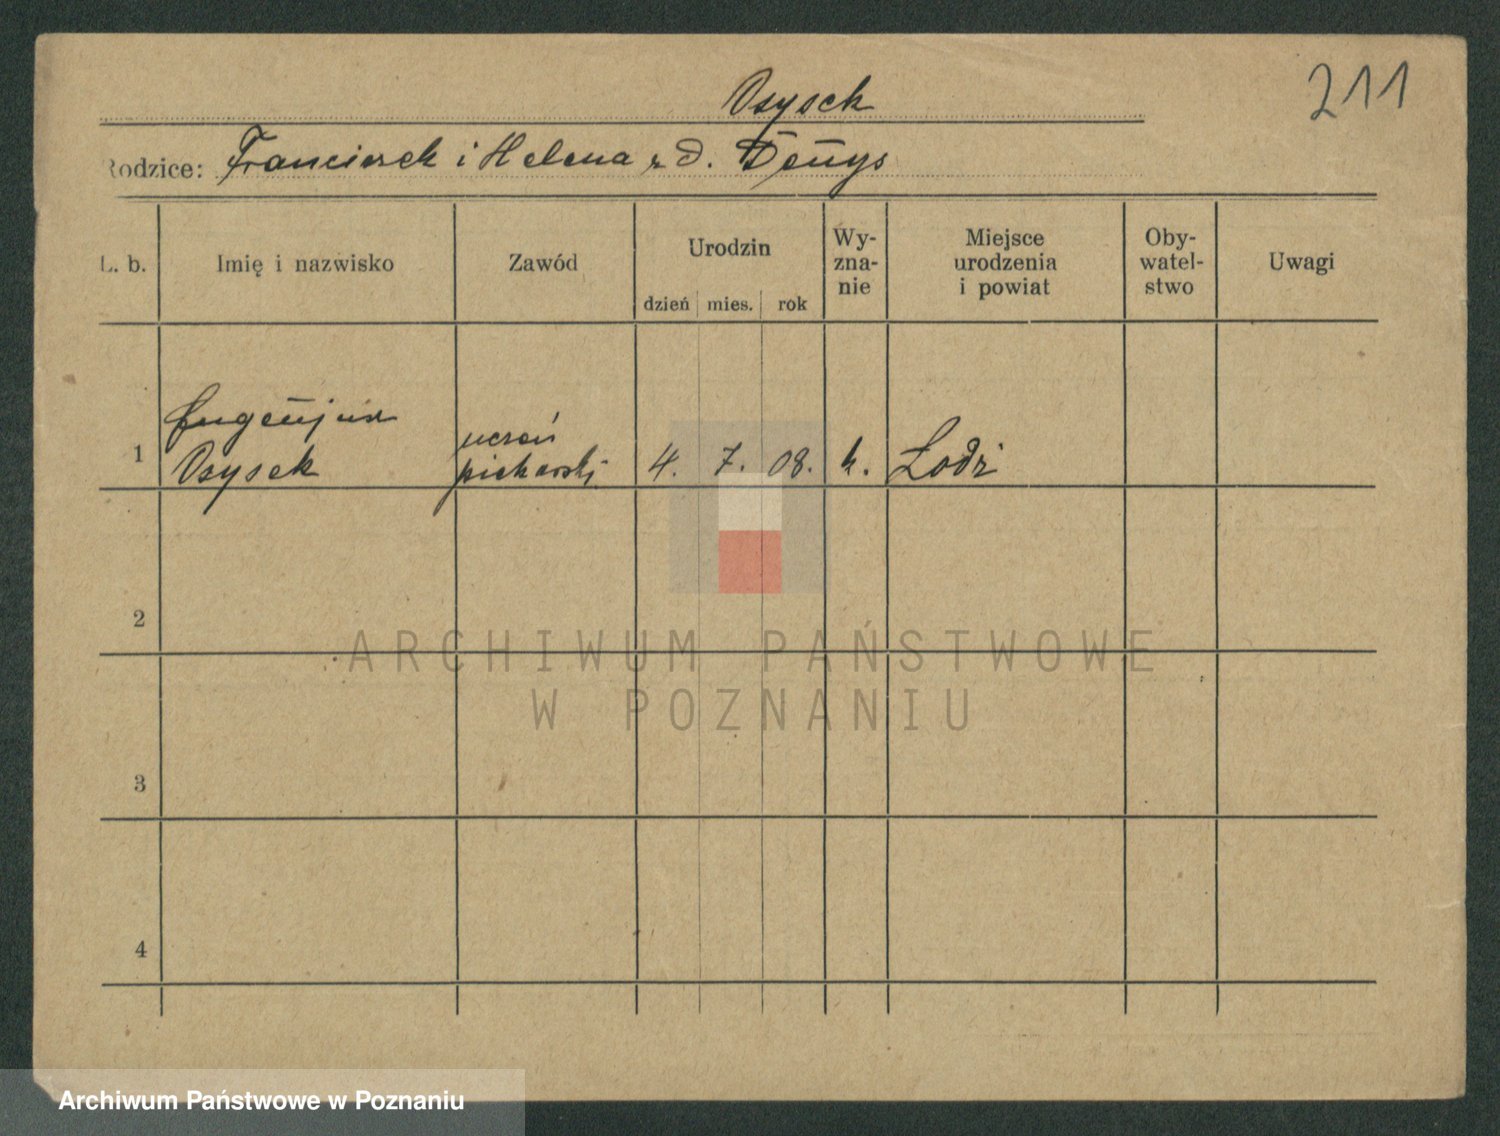 211
Osysek
Rodzice: Franciszek i Helena z d. Denys
L. b.
Imię i nazwisko
Zawód
Urodzin
dzień mies. rok
Wy-
zna-
nie
Miejsce
urodzenia
i powiat
Oby-
watel-
stwo
Uwagi
1 Eugenjusz
Osysek
uczeń
piekarski
4. 7. 08. k. Lodz
2
3
4
ARCHIWUM PAŃSTWOWE
W POZNANIU
Archiwum Państwowe w Poznaniu